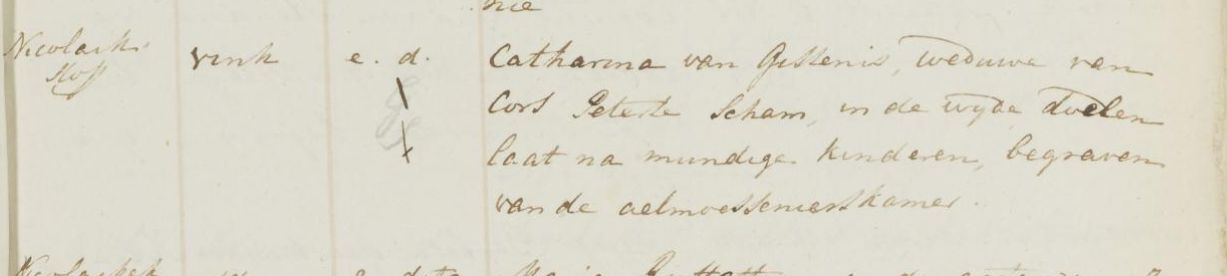 nie
Nicolaik. vink e. d. Catharina van Gistenis, weduwe van
Hoff Cors Peterse Scham, in de wyde doelen
laat na mundige kinderen, begraven
van de aelmoessenierskamer.